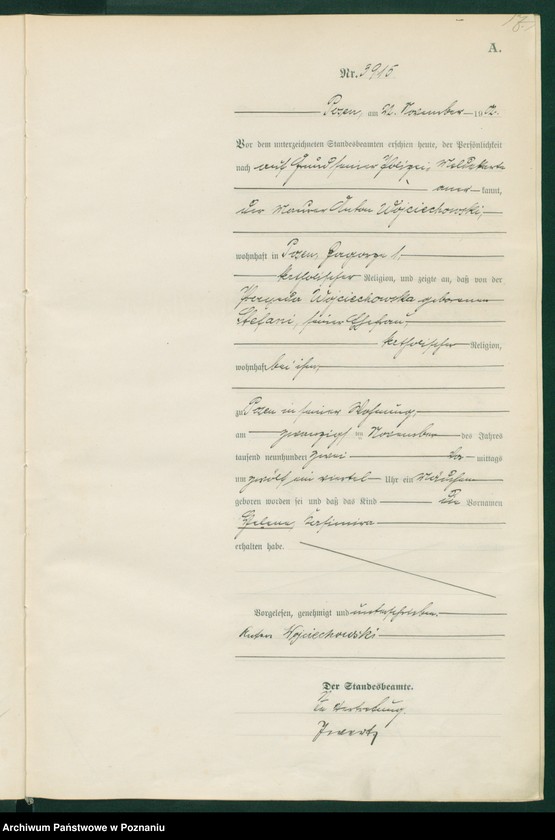 A.
Nr. 3915.
Posen, am 22. November 1902.
Vor dem unterzeichneten Standesbeamten erschien heute, der Persönlichkeit
nach auf Grund seiner Polizei Meldekarte
aner kannt,
der Maurer Anton Wojciechowski,
wohnhaft in Posen, Zagorze 1,
katholischer Religion, und zeigte an, daß von der
Wojciechowska geborenen
Stefani, seiner Ehefrau,
katholischer Religion,
wohnhaft bei ihm,
zu Posen in seiner Wohnung,
am zwanzigsten November des Jahres
tausend neunhundert zwei mittags
um zwölf ein viertel Uhr ein Mädchen
geboren worden sei und daß das Kind die Vornamen
Helena, Kasimira
erhalten habe.
Vorgelesen, genehmigt und unterschrieben.
Anton Wojciechowski
Der Standesbeamte.
In Vertretung.
Archiwum Państwowe w Poznaniu